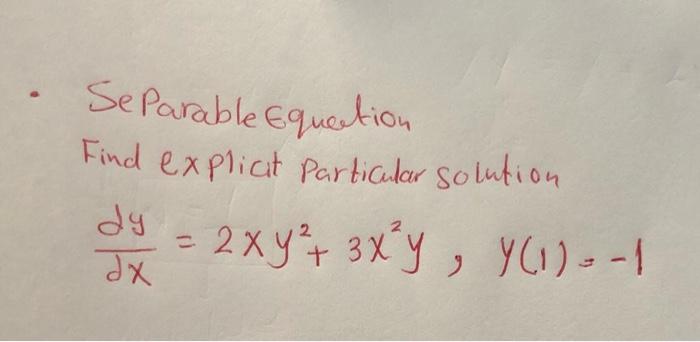 • Separable Equation
Find explicit particular solution
dy/dx = 2xy² + 3x²y , y(1) = -1